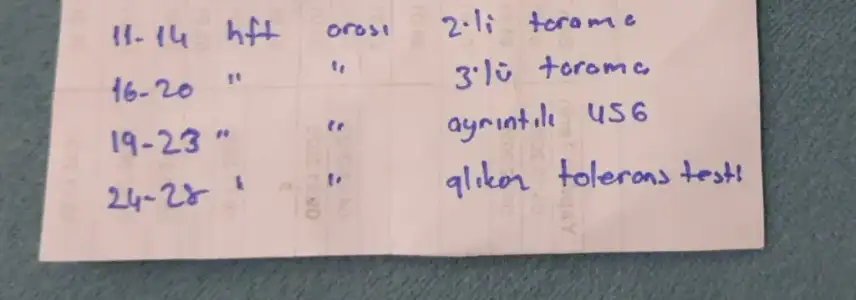 11-14 hft arası 2'li tarama
16-20 " " 3'lü tarama
19-23 " " ayrıntılı USG
24-28 " " glikoz tolerans testi